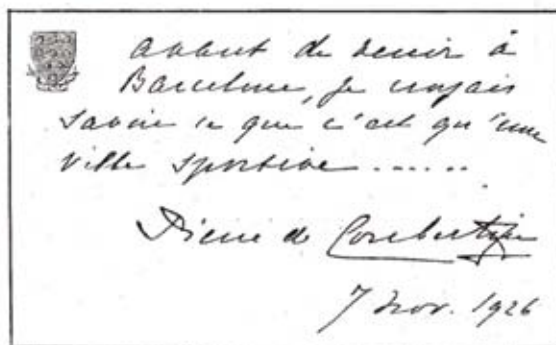 avant de venir à
Barcelone, je croyais
savoir ce que c'est qu'une
ville sportive......
Pierre de Coubertin
7 nov. 1926